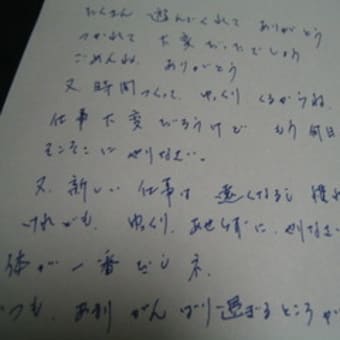 たくさん 遊んでくれて ありがとう
つかれて 大変だったでしょう
ごめんね。ありがとう
又 時間つくって、ゆっくり くるからね。
仕事大変だろうけど もう何日
そこそこに やりなさい。
又 新しい 仕事は 遠くなるし
けれども、ゆっくり、あせらずに、やりなさい
体が一番だしネ
いつも、あまり がんばり過ぎるところが